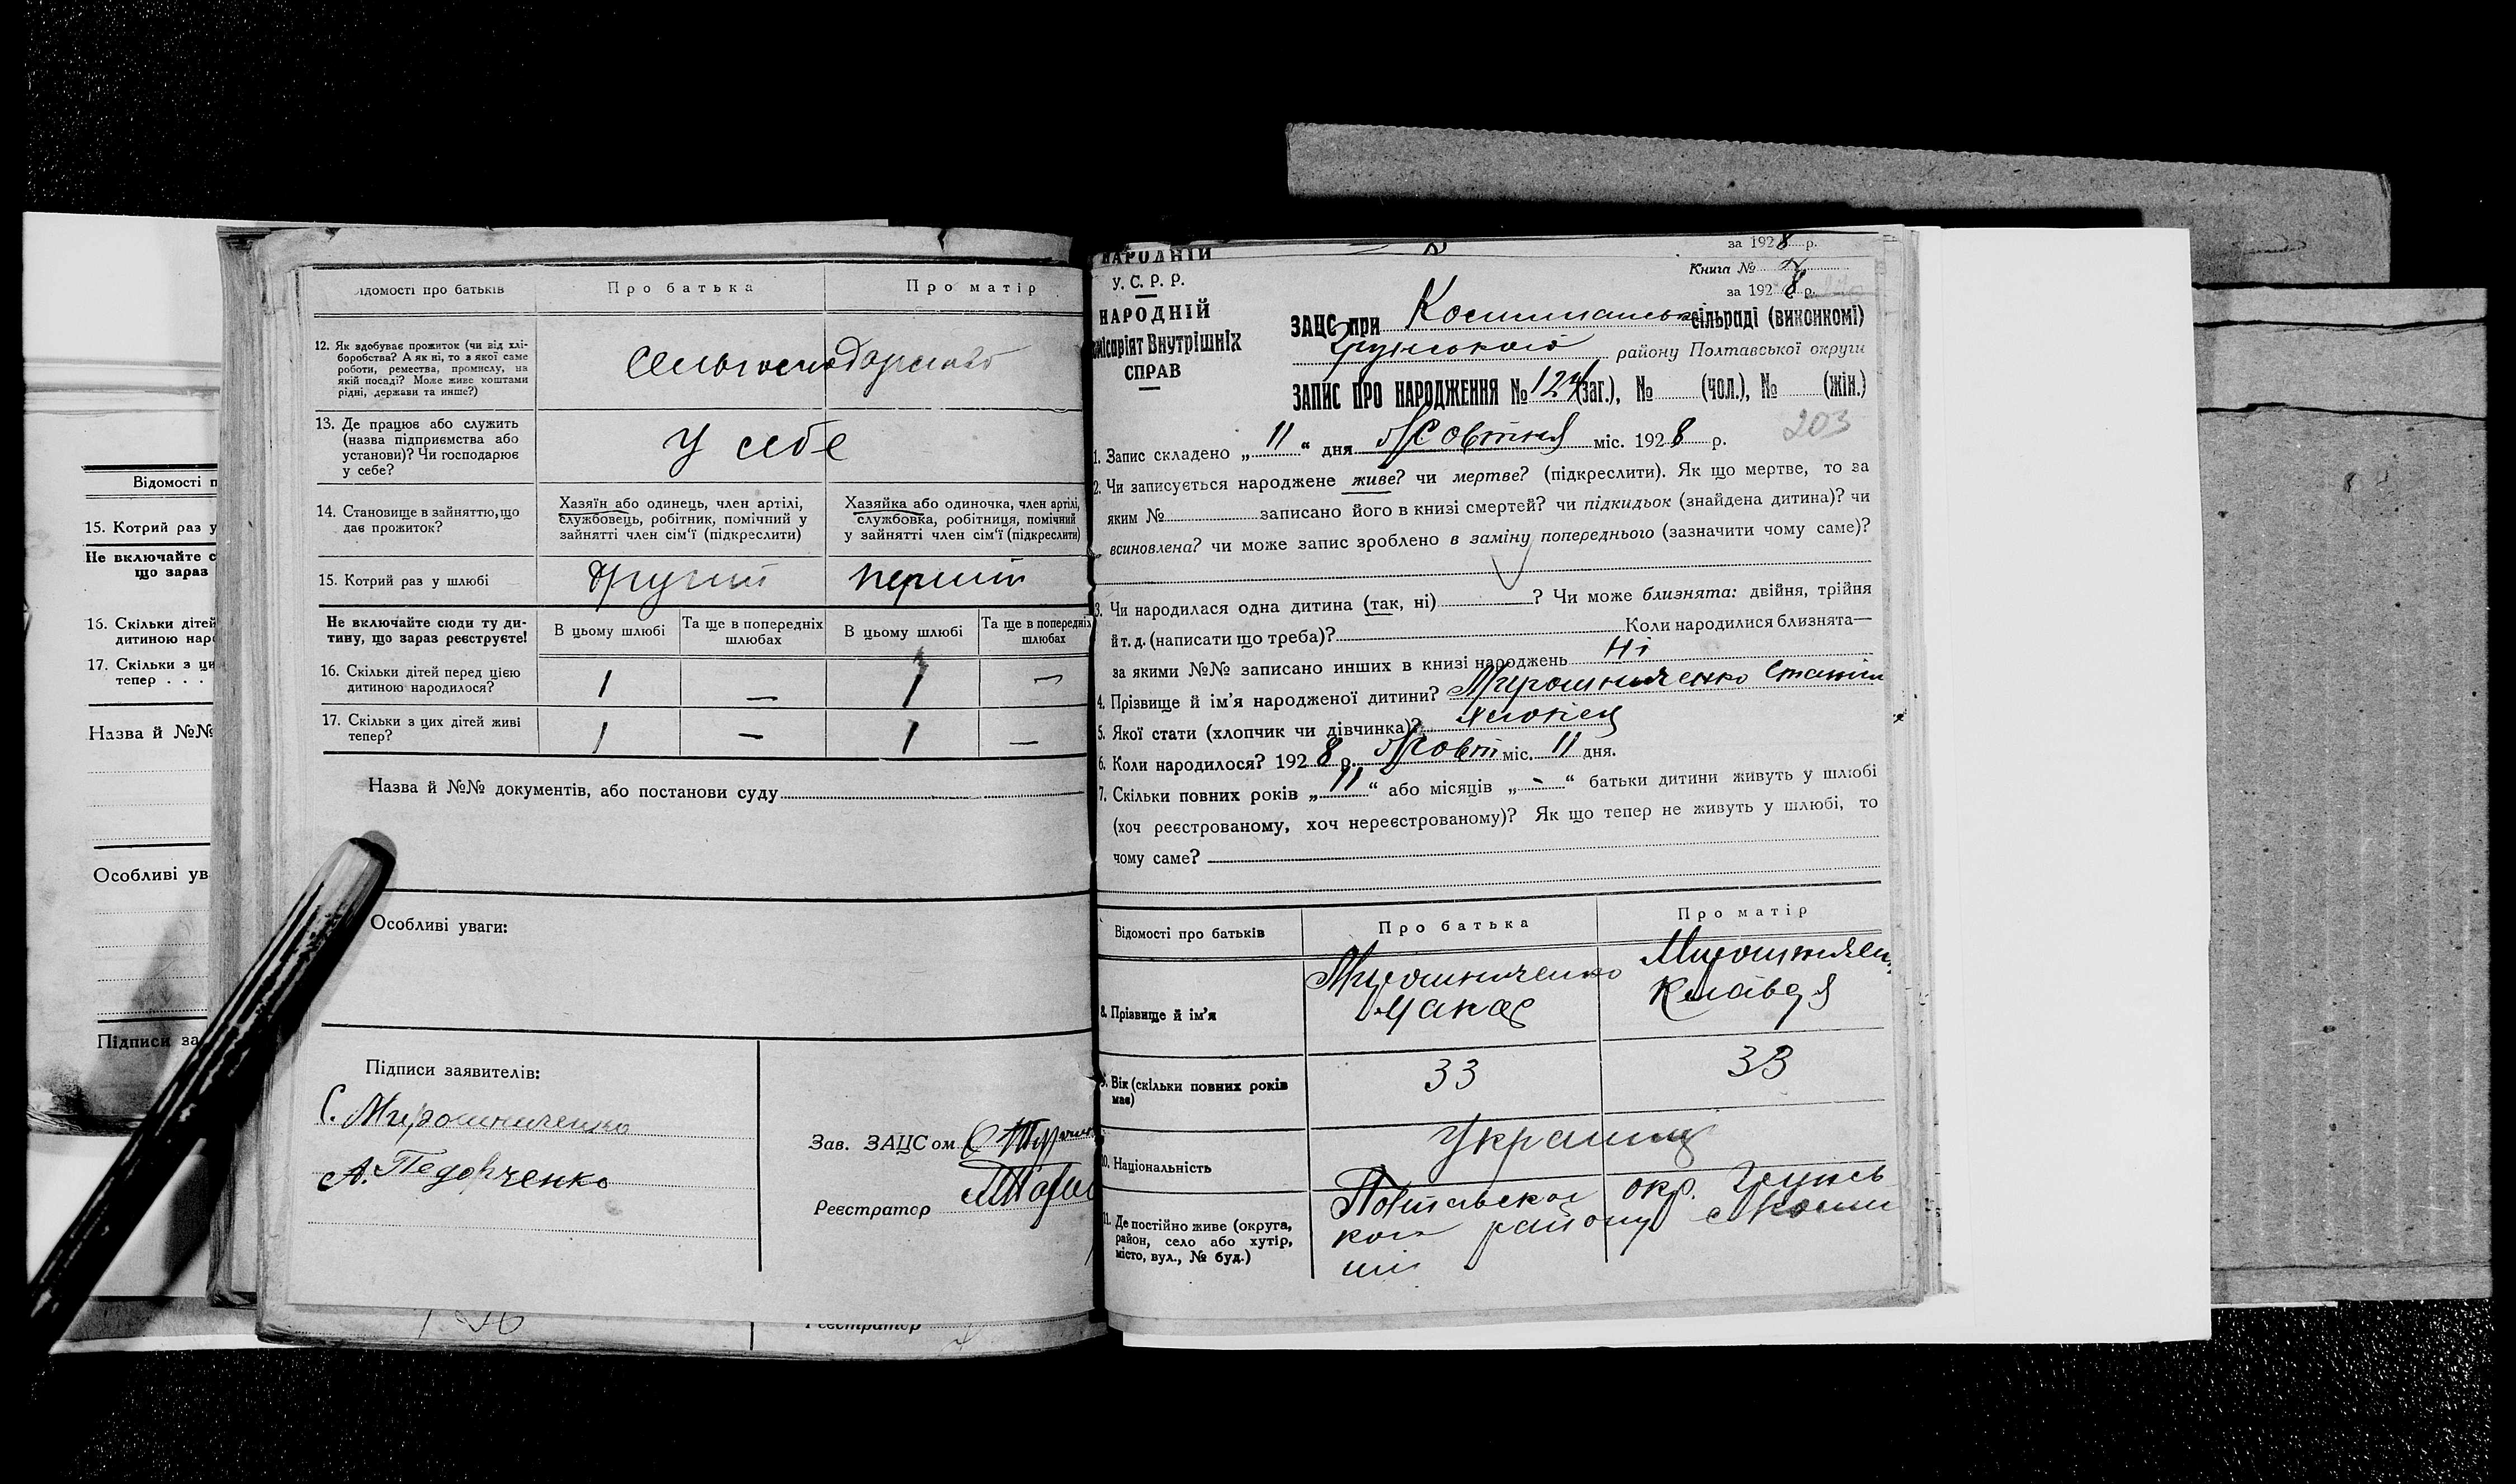 Відомості п
15. Котрий раз у
Не включайте с
що зараз
16. Скільки дітей
дитиною наро
17. Скільки з ци
тепер . . .
Назва й №№
Особливі ув
Підписи за
ідомості про батьків
Про батька
Про матір
12. Як здобуває прожиток (чи від хлі-
боробства? А як ні, то з якої саме
роботи, ремества, промислу, на
якій посаді? Може живе коштами
рідні, держави та инше?)
13. Де працює або служить
(назва підприємства або
установи)? Чи господарює
у себе?
У себе
14. Становище в зайняттю, що
дає прожиток?
Хазяїн або одинець, член артілі,
службовець, робітник, помічний у
зайнятті член сім'ї (підкреслити)
Хазяйка або одиночка, член артілі,
службовка, робітниця, помічний
у зайнятті член сім'ї (підкреслити)
15. Котрий раз у шлюбі
другий
перший
Не включайте сюди ту ди-
тину, що зараз реєструєте!
В цьому шлюбі
Та ще в попередніх
шлюбах
В цьому шлюбі
Та ще в попередніх
шлюбах
16. Скільки дітей перед цією
дитиною народилося?
1 — 1 —
17. Скільки з цих дітей живі
тепер?
1 — 1 —
Назва й №№ документів, або постанови суду
Особливі уваги:
Підписи заявителів:
С. Мирошниченко
А. Педорченко
Зав. ЗАЦСом
Реєстратор
Реєстратор
НАРОДНІЙ
У. С. Р. Р.
НАРОДНІЙ
омісаріят Внутрішніх
СПРАВ
за 1928 р.
Книга №
за 1928 р.
ЗАЦС при сільраді (виконкомі)
району Полтавської округи
ЗАПИС ПРО НАРОДЖЕННЯ № 124 (заг.), № (чол.), № (жін.)
203
1. Запис складено „ 11 “ дня Жовтня міс. 1928 р.
2. Чи записується народжене живе? чи мертве? (підкреслити). Як що мертве, то за
яким № записано його в книзі смертей? чи підкидьок (знайдена дитина)? чи
всиновлена? чи може запис зроблено в заміну попереднього (зазначити чому саме)?
3. Чи народилася одна дитина (так, ні) ? Чи може близнята: двійня, трійня
й т. д. (написати що треба)? Коли народилися близнята—
за якими №№ записано инших в книзі народжень Ні
4. Прізвище й ім'я народженої дитини? Мирошниченко
5. Якої стати (хлопчик чи дівчинка)? хлопець
6. Коли народилось? 1928 р. Жовт міс. 11 дня.
7. Скільки повних років „ 11 “ або місяців „ - “ батьки дитини живуть у шлюбі
(хоч реєстрованому, хоч нереєстрованому)? Як що тепер не живуть у шлюбі, то
чому саме?
Відомості про батьків
Про батька
Про матір
8. Прізвище й ім'я
Мирошниченко
Мирошничен
Клавдя
9. Вік (скільки повних років
має)
33
33
10. Національність
Українці
11. Де постійно живе (округа,
район, село або хутір,
місто, вул., № буд.)
Полтавської окр. Грунсь
кого району с.